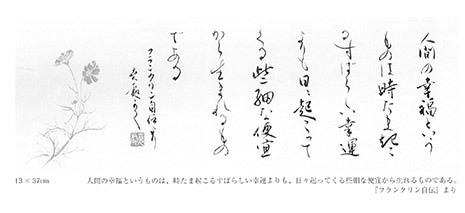 人間の幸福という
ものは時たま起こ
るすばらしい幸運
よりも日々起こって
くる些細な便宜
から生まれるもの
である
フランクリン自伝より
13×37cm
人間の幸福というものは、時たま起こるすばらしい幸運よりも、日々起ってくる些細な便宜から生れるものである。
『フランクリン自伝』より